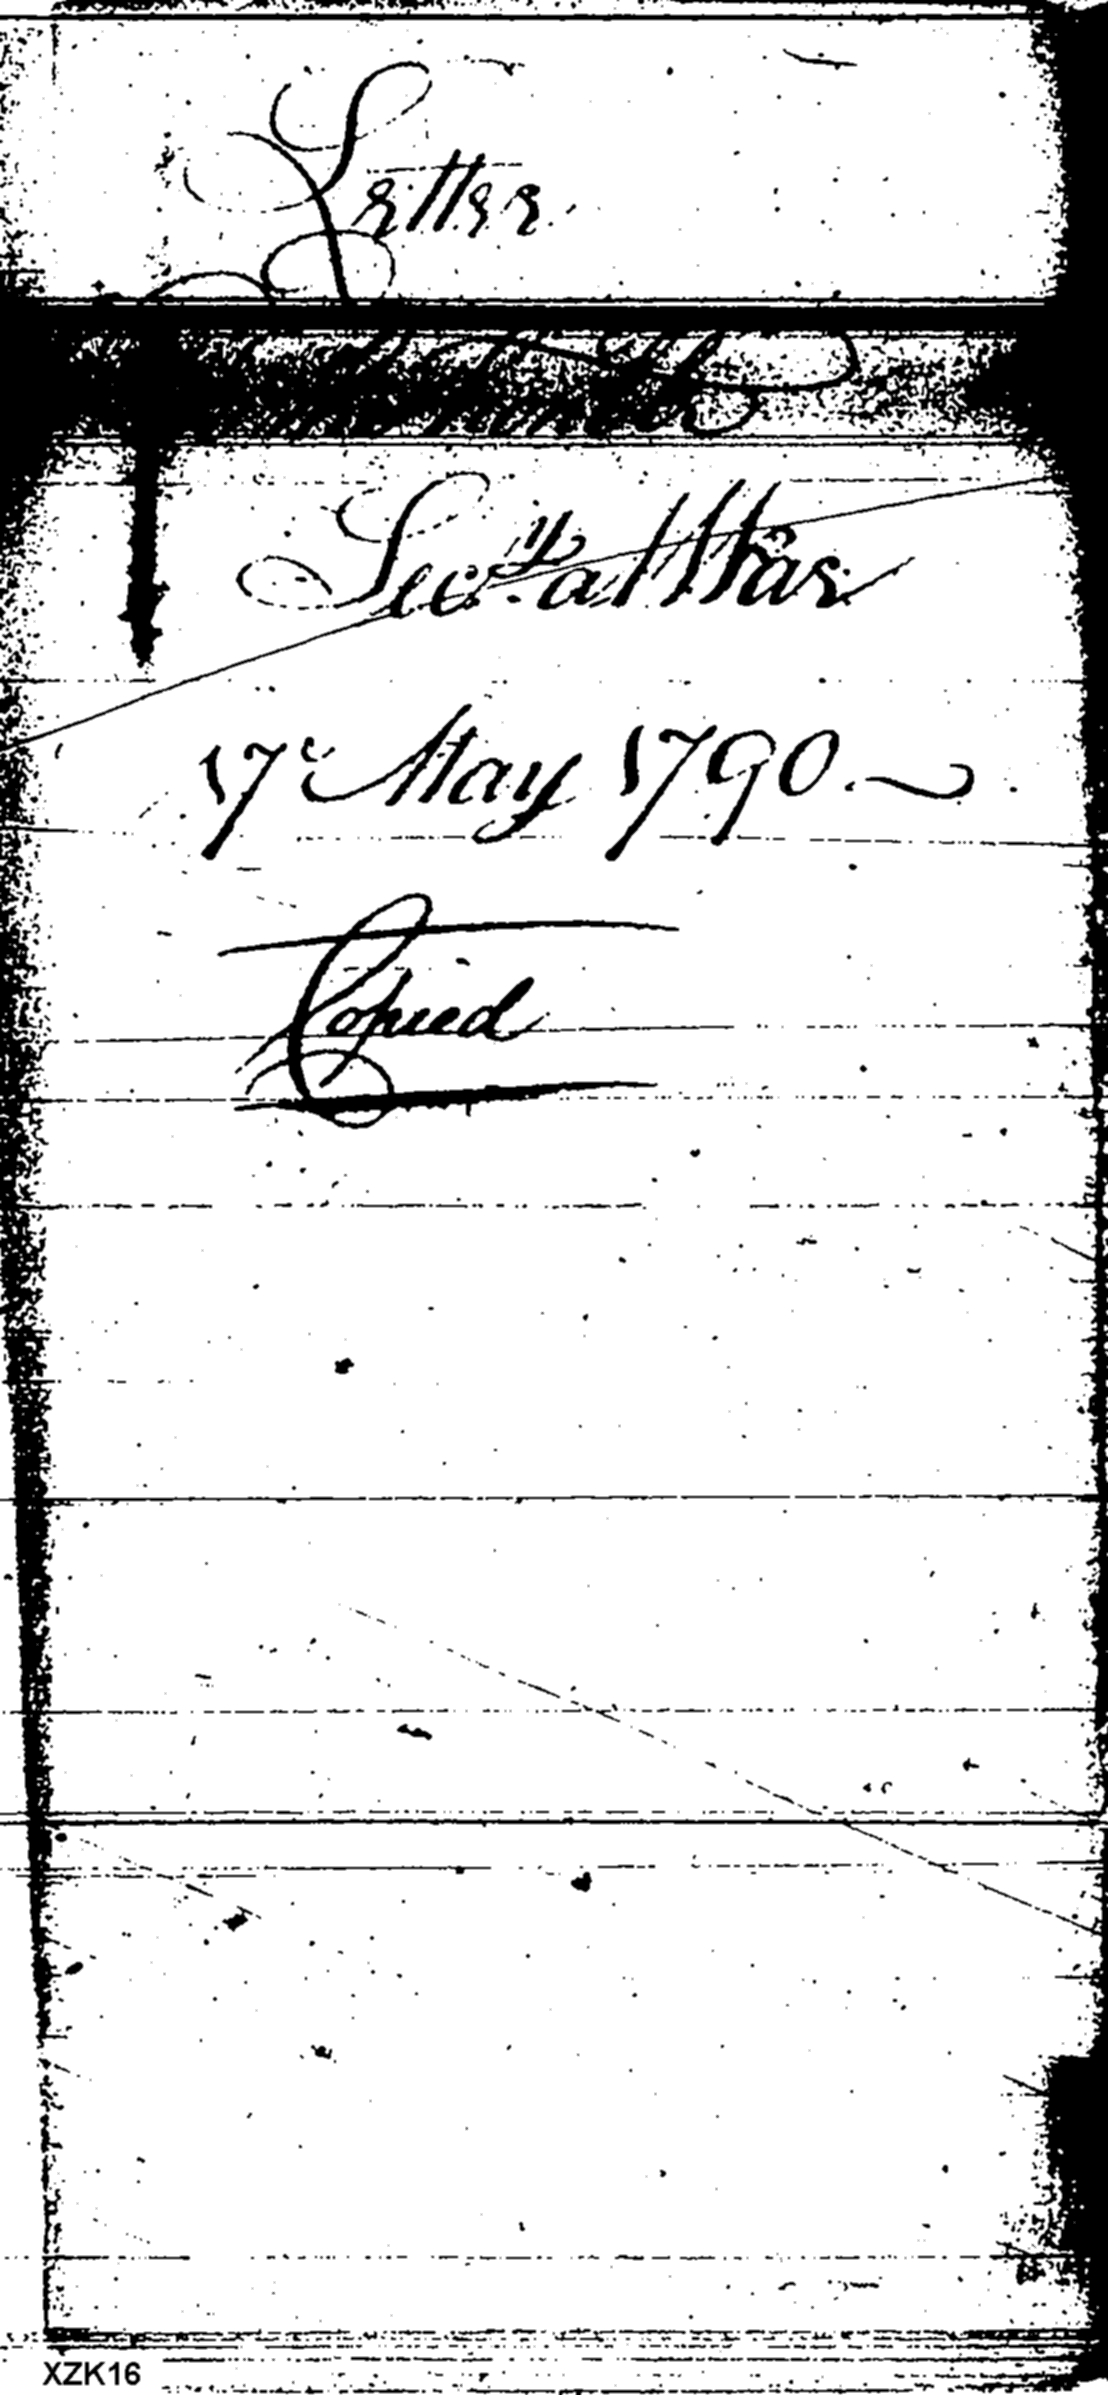 Letter
Secry. at War
17e May 1790.
Copied
XZK16